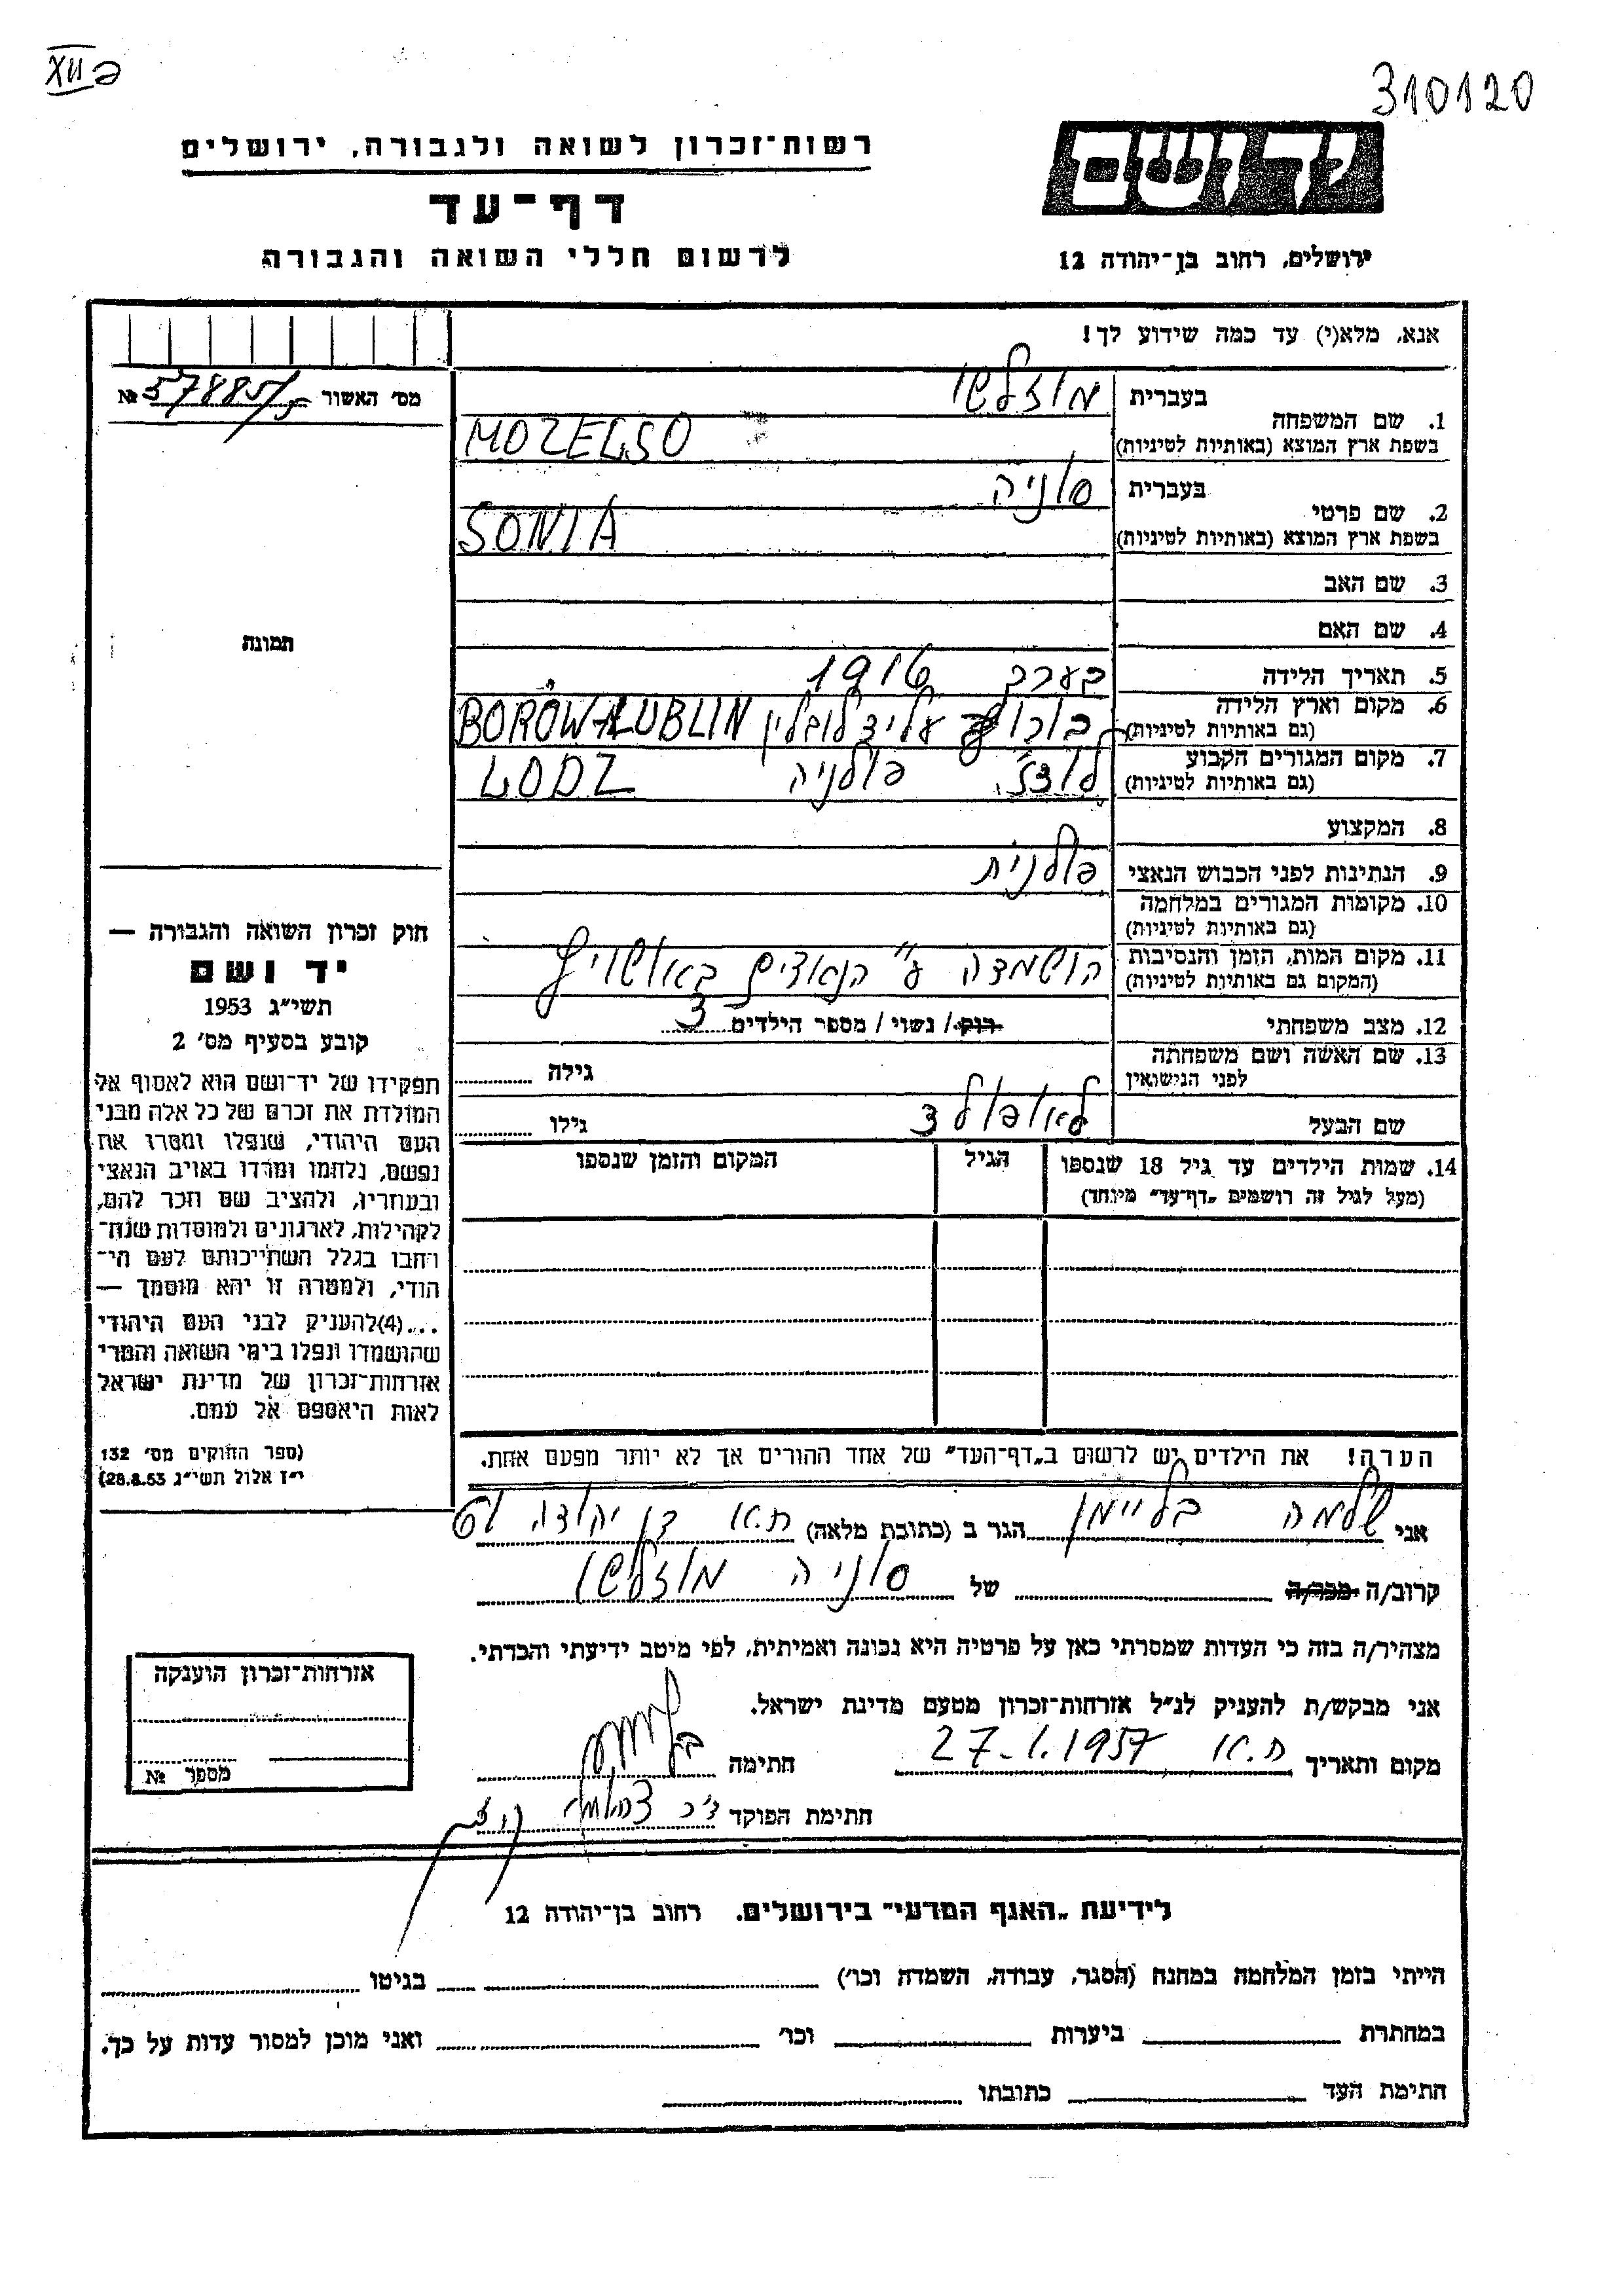 310120
XII
יד ושם
ירושלים, רחוב בן־יהודה 12
רשות־זכרון לשואה ולגבורה, ירושלים
דף־עד
לרשום חללי השואה והגבורה
אנא, מלא(י) עד כמה שידוע לך!
מס׳ האשור № 57885/5
תמונה
1. שם המשפחה
בעברית מוזלשו
בשפת ארץ המוצא (באותיות לטיניות) MOZELSO
2. שם פרטי
בעברית סוניה
בשפת ארץ המוצא (באותיות לטיניות) SONIA
3. שם האב
4. שם האם
5. תאריך הלידה בערך 1916
6. מקום וארץ הלידה
(גם באותיות לטיניות) על יד לובלין BORÓW-LUBLIN
7. מקום המגורים הקבוע לודז׳ פולניה LODZ
(גם באותיות לטיניות)
8. המקצוע
9. הנתינות לפני הכבוש הנאצי פולנית
10. מקומות המגורים במלחמה
(גם באותיות לטיניות)
11. מקום המות, הזמן והנסיבות הושמדה ע״י הנאצים באושויץ
(המקום גם באותיות לטיניות)
12. מצב משפחתי רוק/ נשוי / מספר הילדים 3
13. שם האשה ושם משפחתה
לפני הנישואין גילה
שם הבעל לאופולד גילו
14. שמות הילדים עד גיל 18 שנספו הגיל המקום והזמן שנספו
(מעל לגיל זה רושמים „דף־עד״ מיוחד)
חוק זכרון השואה והגבורה —
יד ושם
תשי״ג 1953
קובע בסעיף מס׳ 2
תפקידו של יד־ושם הוא לאסוף אל
המולדת את זכרם של כל אלה מבני
העם היהודי, שנפלו ומסרו את
נפשם, נלחמו ומרדו באויב הנאצי
ובעוזריו, ולהציב שם וזכר להם,
לקהילות, לארגונים ולמוסדות שנח־
רבו בגלל השתייכותם לעם הי־
הודי, ולמטרה זו יהא מוסמך —
...(4)להעניק לבני העם היהודי
שהושמדו ונפלו בימי השואה והמרי
אזרחות־זכרון של מדינת ישראל
לאות היאספם אל עמם.
(ספר החוקים מס׳ 132
י״ז אלול תשי״ג 28.8.53)
הערה! את הילדים יש לרשום ב„דף־העד״ של אחד ההורים אך לא יותר מפעם אחת.
אני שלמה בליימן הגר ב (כתובת מלאה) ת.א בן יהודה 61
קרוב/ה מכר/ה של סוניה מוזלשו
מצהיר/ה בזה כי העדות שמסרתי כאן על פרטיה היא נכונה ואמיתית, לפי מיטב ידיעתי והכרתי.
אני מבקש/ת להעניק לנ״ל אזרחות־זכרון מטעם מדינת ישראל.
מקום ותאריך ת.א 27.1.1957 חתימה
חתימת הפוקד
אזרחות־זכרון הוענקה
מספר №
לידיעת „האגף המדעי״ בירושלים, רחוב בן־יהודה 12
הייתי בזמן המלחמה במחנה (הסגר, עבודה, השמדה וכו׳) בגיטו
במחתרת ביערות וכו׳ ואני מוכן למסור עדות על כך.
חתימת העד כתובתו